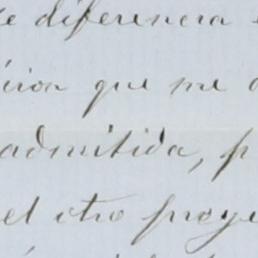 diferencia
que me
admitida, p
el otro proye